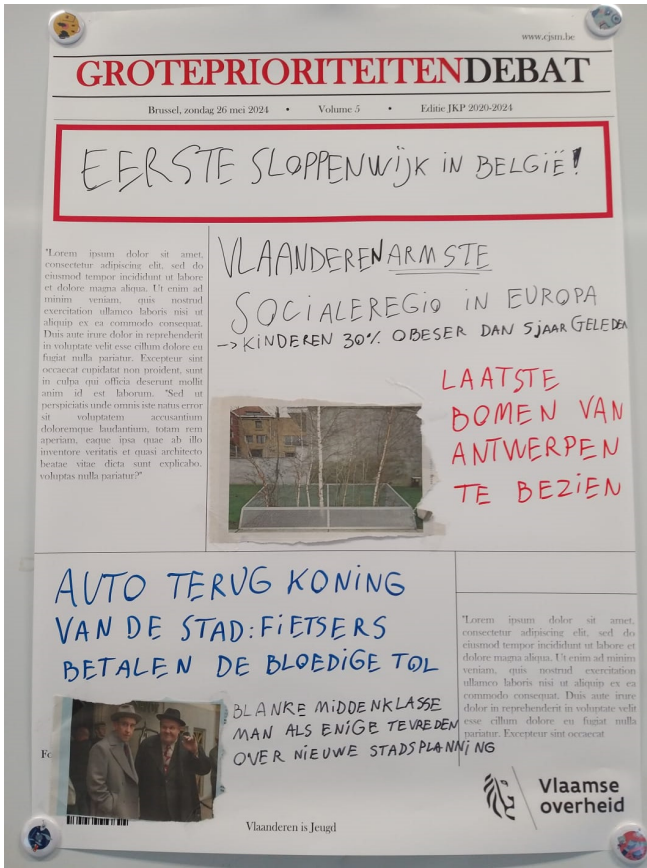 www.cjsm.be
GROTEPRIORITEITENDEBAT
Brussel, zondag 26 mei 2024 • Volume 5 • Editie JKP 2020-2024
EERSTE SLOPPENWIJK IN BELGIË!
"Lorem ipsum dolor sit amet,
consectetur adipiscing elit, sed do
eiusmod tempor incididunt ut labore
et dolore magna aliqua. Ut enim ad
minim veniam, quis nostrud
exercitation ullamco laboris nisi ut
aliquip ex ea commodo consequat.
Duis aute irure dolor in reprehenderit
in voluptate velit esse cillum dolore eu
fugiat nulla pariatur. Excepteur sint
occaecat cupidatat non proident, sunt
in culpa qui officia deserunt mollit
anim id est laborum. "Sed ut
perspiciatis unde omnis iste natus error
sit voluptatem accusantium
doloremque laudantium, totam rem
aperiam, eaque ipsa quae ab illo
inventore veritatis et quasi architecto
beatae vitae dicta sunt explicabo.
voluptas nulla pariatur?"
VLAANDEREN ARMSTE
SOCIALE REGIO IN EUROPA
-> KINDEREN 30% OBESER DAN 5 JAAR GELEDEN
LAATSTE
BOMEN VAN
ANTWERPEN
TE BEZIEN
AUTO TERUG KONING
VAN DE STAD: FIETSERS
BETALEN DE BLOEDIGE TOL
BLANKE MIDDENKLASSE
MAN ALS ENIGE TEVREDEN
OVER NIEUWE STADSPLANNING
"Lorem ipsum dolor sit amet,
consectetur adipiscing elit, sed do
eiusmod tempor incididunt ut labore et
dolore magna aliqua. Ut enim ad minim
veniam, quis nostrud exercitation
ullamco laboris nisi ut aliquip ex ea
commodo consequat. Duis aute irure
dolor in reprehenderit in voluptate velit
esse cillum dolore eu fugiat nulla
pariatur. Excepteur sint occaecat
Vlaanderen is Jeugd
Vlaamse
overheid